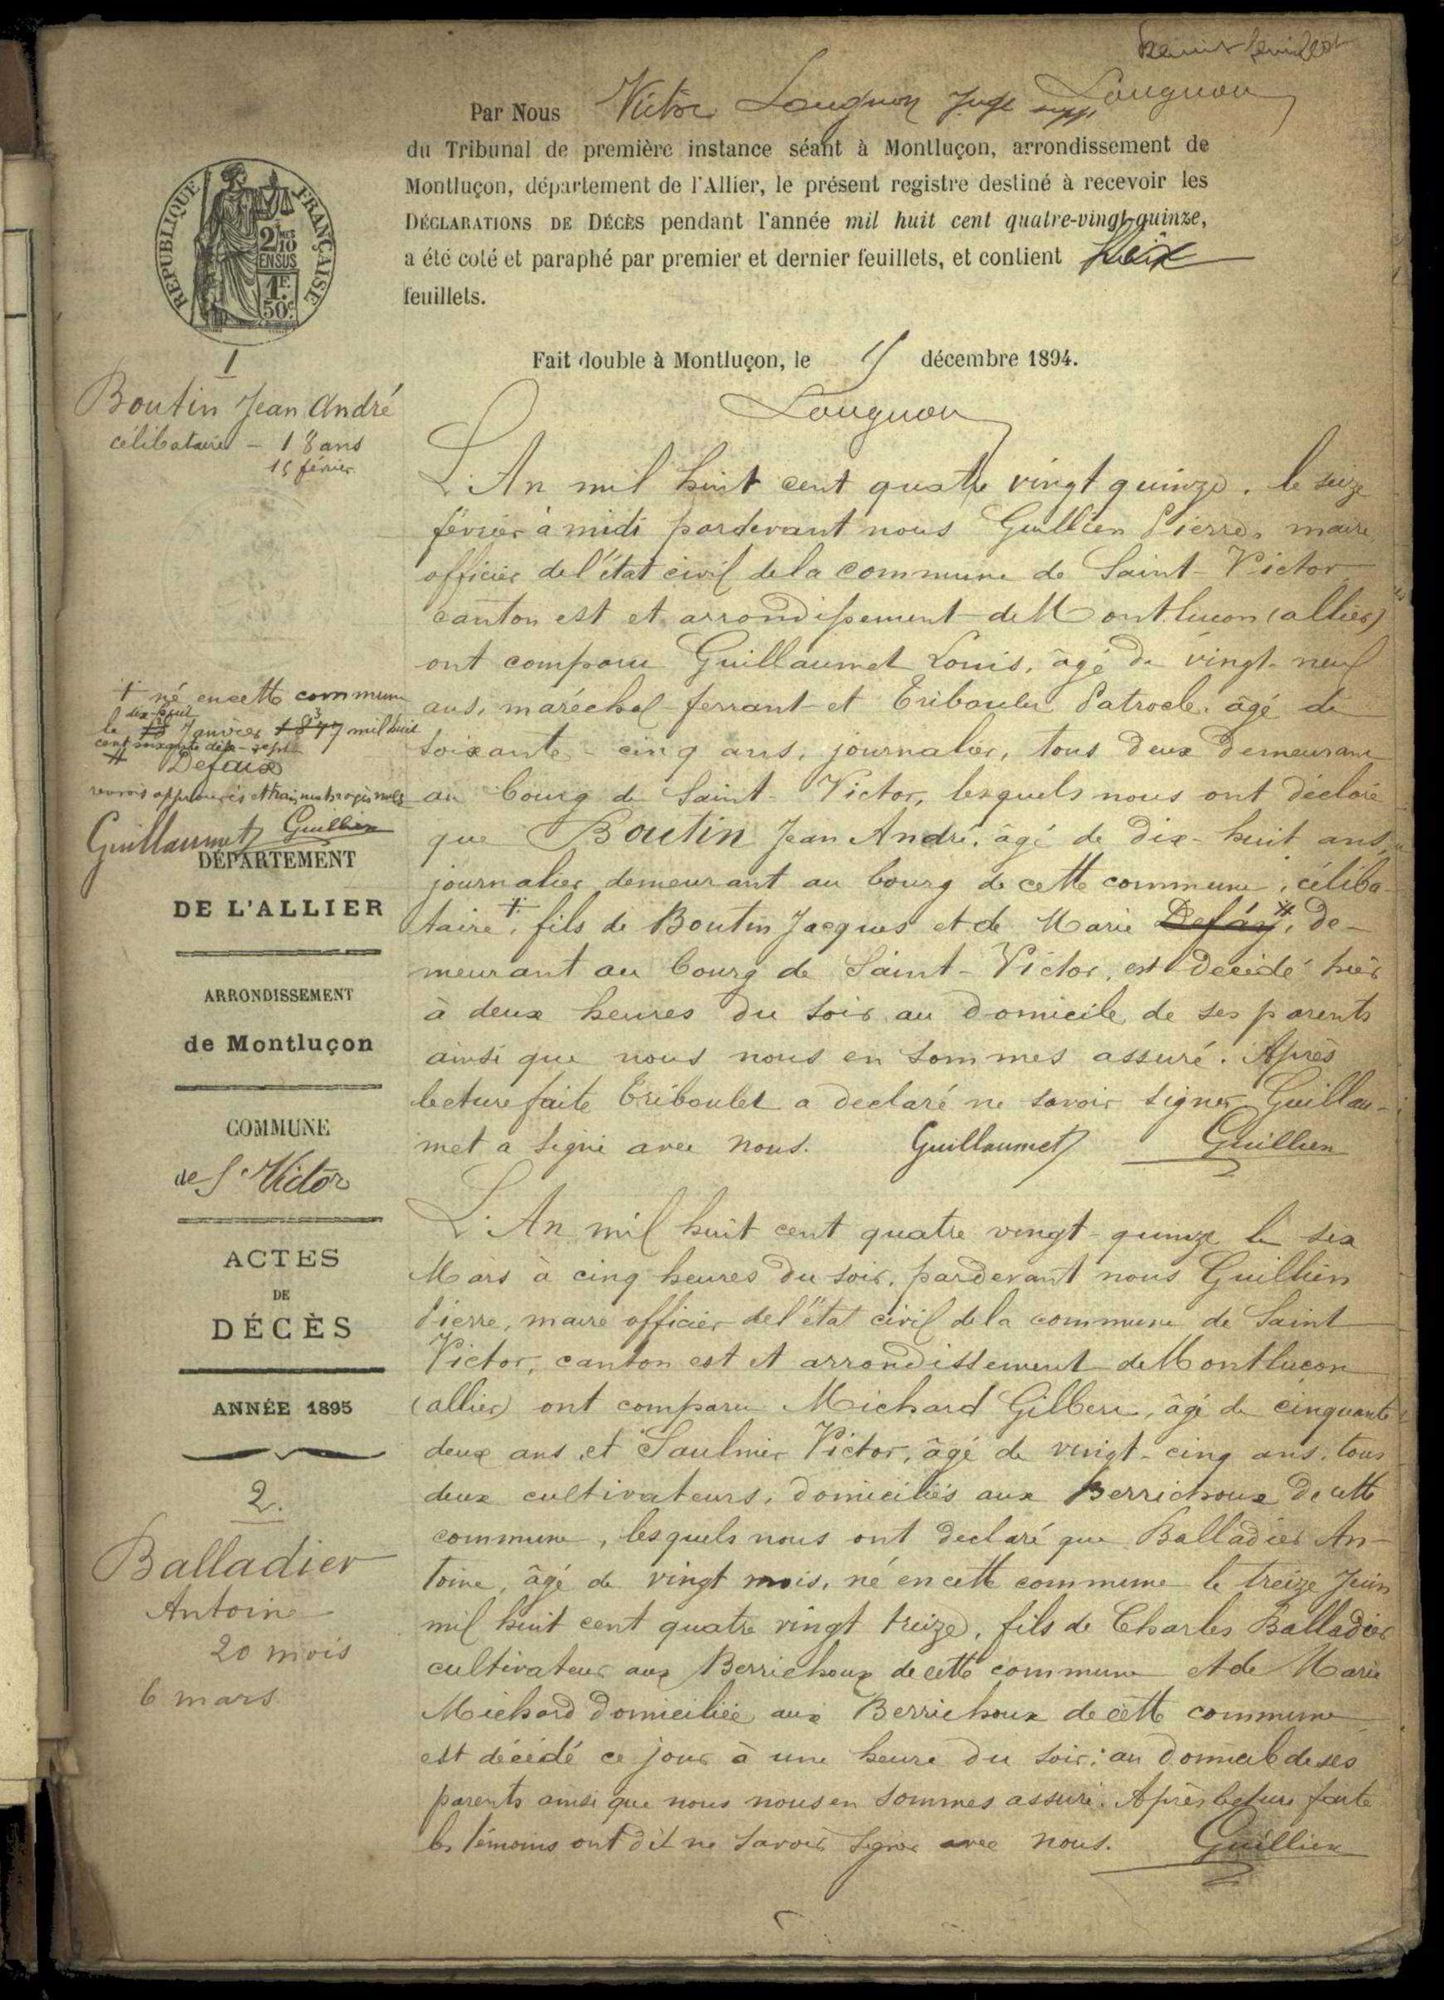 Premier feuillet
Lougnon
Par Nous Victor Lougnon Juge supp.
du Tribunal de première instance séant à Montluçon, arrondissement de
Montluçon, département de l'Allier, le présent registre destiné à recevoir les
DÉCLARATIONS DE DÉCÈS pendant l'année mil huit cent quatre-vingt-quinze,
a été coté et paraphé par premier et dernier feuillets, et contient
feuillets.
Fait double à Montluçon, le décembre 1894.
Lougnon
RÉPUBLIQUE FRANÇAISE
2 MES 10
EN SUS
1F.
50c
1
Boutin Jean André
célibataire - 18 ans
15 février
L'An mil huit cent quatre vingt quinze, le seize
février à midi pardevant nous Guillien Pierre, maire
officier de l'état civil de la commune de Saint-Victor
canton est et arrondissement de Montluçon (allier)
ont comparu Guillaumet Louis, âgé de vingt-neuf
ans, maréchal-ferrant et Triboulet Patrocle, âgé de
soixante-cinq ans, journalier, tous deux demeurant
au bourg de Saint-Victor, lesquels nous ont déclaré
que Boutin Jean André, âgé de dix-huit ans
journalier demeurant au bourg de cette commune, céliba-
taire +, fils de Boutin Jacques et de Marie Defay #, de-
meurant au bourg de Saint-Victor, est décédé hier
à deux heures du soir au domicile de ses parents
ainsi que nous nous en sommes assuré. Après
lecture faite Triboulet a declaré ne savoir signer Guillau-
met a signé avec nous. Guillaumet Guillien
+ né en cette commune
dix-huit
le 18 Janvier 1877 mil huit
cent soixante dix-sept
# Defaix
renvois approuvés et trois mots rayés nuls
Guillaumet Guillien
DÉPARTEMENT
DE L'ALLIER
ARRONDISSEMENT
de Montluçon
COMMUNE
de St Victor
ACTES
DE
DÉCÈS
ANNÉE 1895
2.
Balladier
Antoine
20 mois
6 mars
L'An mil huit cent quatre vingt-quinze le six
Mars à cinq heures du soir, pardevant nous Guillien
Pierre, maire officier de l'état civil de la commune de Saint
Victor, canton est et arrondissement de Montluçon
(allier) ont comparu Michard Gilbert, âgé de cinquante
deux ans et Saulnier Victor, âgé de vingt-cinq ans, tous
deux cultivateurs, domiciliés aux Berrichoux de cette
commune, lesquels nous ont declaré que Balladier An-
toine, âgé de vingt mois, né en cette commune le treize Juin
mil huit cent quatre vingt treize, fils de Charles Balladier
cultivateur aux Berrichoux de cette commune et de Marie
Michard domiciliée aux Berrichoux de cette commune
est décédé ce jour à une heure du soir, au domicile de ses
parents ainsi que nous nous en sommes assuré. Après lecture faite
les témoins ont dit ne savoir signer avec nous. Guillien